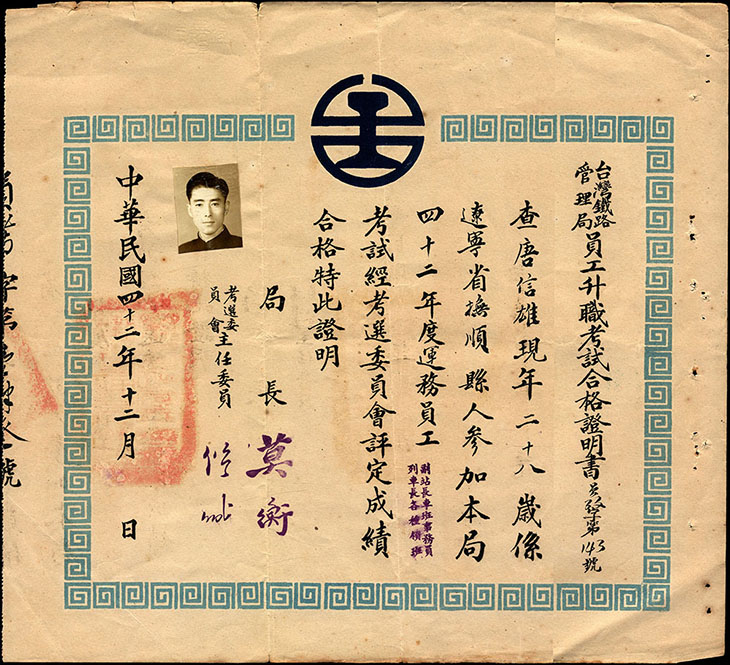 台灣鐵路管理局員工升職考試合格證明書
第143號
查唐信雄現年二十八歲係
遼寧省撫順縣人參加本局
四十二年度運務員工
副站長車班事務員
列車長各種領班
考試經考選委員會評定成績
合格特此證明
局長莫衡
考選委員會主任委員
中華民國四十二年十二月 日